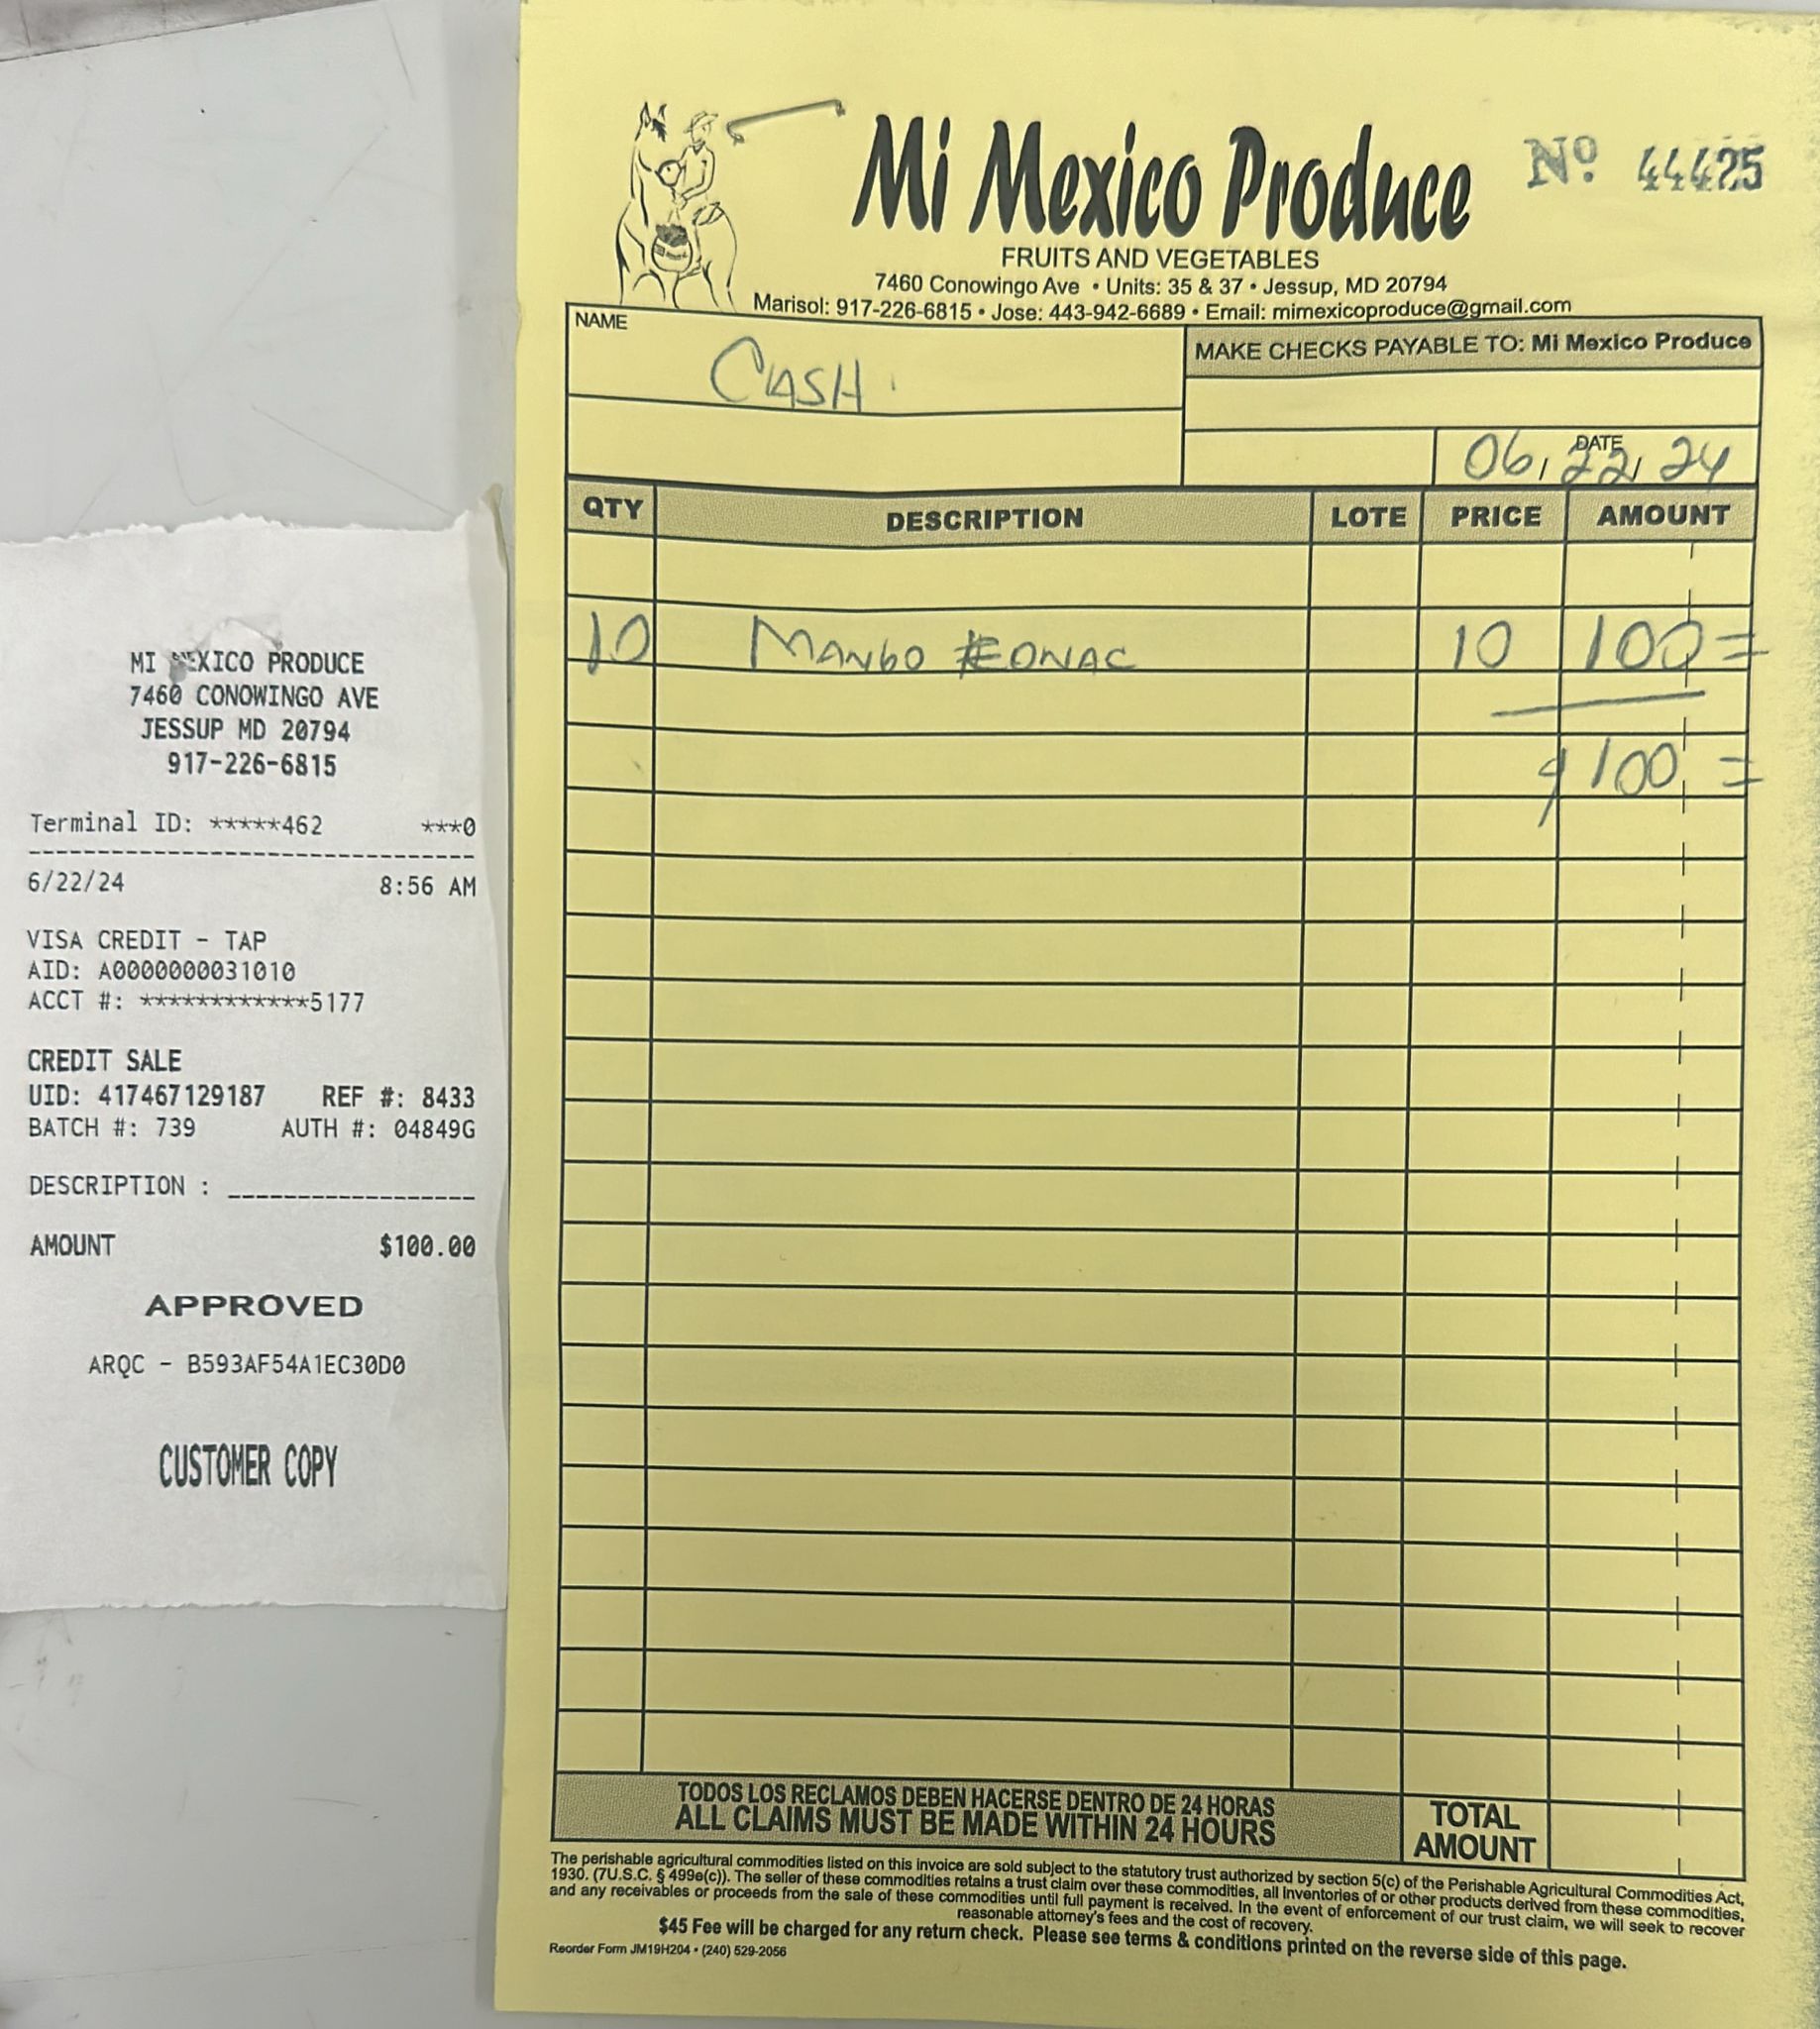 MI MEXICO PRODUCE
7460 CONOWINGO AVE
JESSUP MD 20794
917-226-6815
Terminal ID: *****462 ***0
6/22/24 8:56 AM
VISA CREDIT - TAP
AID: A0000000031010
ACCT #: ************5177
CREDIT SALE
UID: 417467129187 REF #: 8433
BATCH #: 739 AUTH #: 04849G
DESCRIPTION :
AMOUNT $100.00
APPROVED
ARQC - B593AF54A1EC30D0
CUSTOMER COPY
Mi Mexico Produce
Nº 44425
FRUITS AND VEGETABLES
7460 Conowingo Ave • Units: 35 & 37 • Jessup, MD 20794
Marisol: 917-226-6815 • Jose: 443-942-6689 • Email: mimexicoproduce@gmail.com
NAME
CASH
MAKE CHECKS PAYABLE TO: Mi Mexico Produce
DATE
06, 22, 24
QTY DESCRIPTION LOTE PRICE AMOUNT
10 MANGO 10 100=
$100 =
TODOS LOS RECLAMOS DEBEN HACERSE DENTRO DE 24 HORAS
ALL CLAIMS MUST BE MADE WITHIN 24 HOURS
TOTAL
AMOUNT
The perishable agricultural commodities listed on this invoice are sold subject to the statutory trust authorized by section 5(c) of the Perishable Agricultural Commodities Act,
1930. (7U.S.C. § 499e(c)). The seller of these commodities retains a trust claim over these commodities, all inventories of or other products derived from these commodities,
and any receivables or proceeds from the sale of these commodities until full payment is received. In the event of enforcement of our trust claim, we will seek to recover
reasonable attorney's fees and the cost of recovery.
$45 Fee will be charged for any return check. Please see terms & conditions printed on the reverse side of this page.
Reorder Form JM19H204 • (240) 529-2056